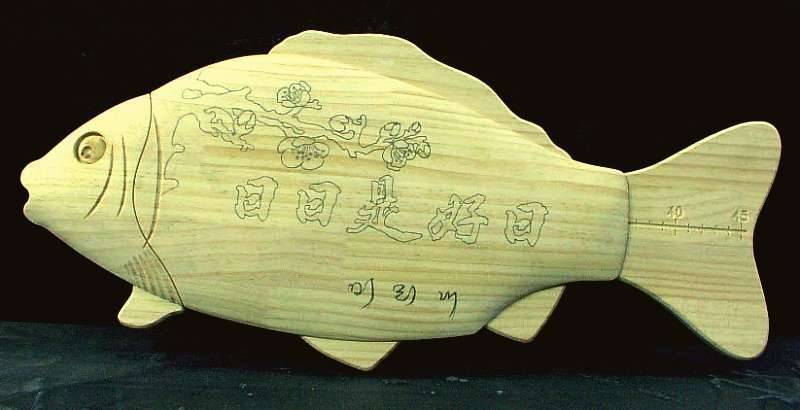 日日是好日
10 15